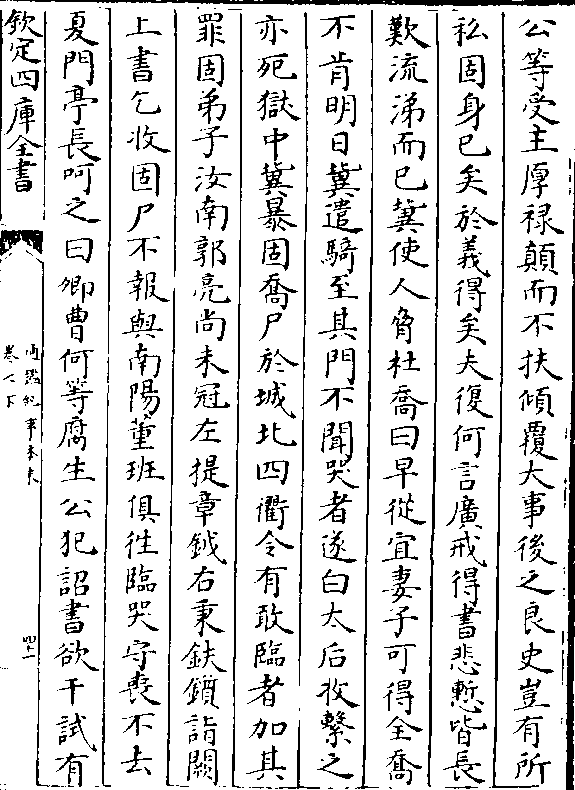 公等受主厚禄顛而不扶傾覆大事後之良史豈有所
私固身已矣於義得矣夫復何言廣戒得書悲慙皆長
歎流涕而已冀使人脅杜喬曰早從宜妻子可得全喬
不肯明日冀遣騎至其門不聞哭者遂白太后收繫之
亦死獄中冀暴固喬尸於城北四衢令有敢臨者加其
罪固弟子汝南郭亮尚未冠左提章鉞右秉鈇鑕詣闕
上書乞收固尸不報與南陽董班俱往臨哭守喪不去
夏門亭長呵之曰卿曹何等腐生公犯詔書欲干試有
欽定四庫全書
通鑑紀事本末
卷七下
四十一